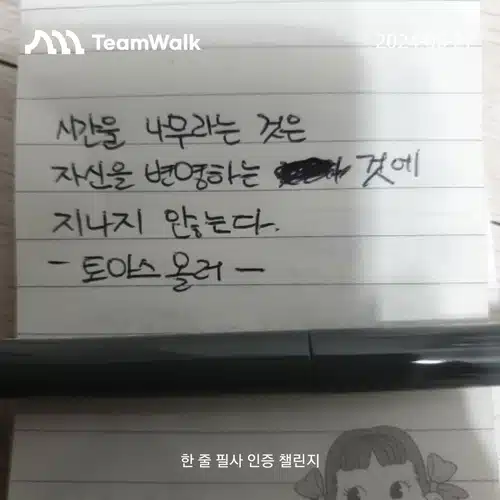 TeamWalk
시간을 나무라는 것은
자신을 변영하는 것에
지나지 않는다.
- 토마스 올러 -
한 줄 필사 인증 챌린지